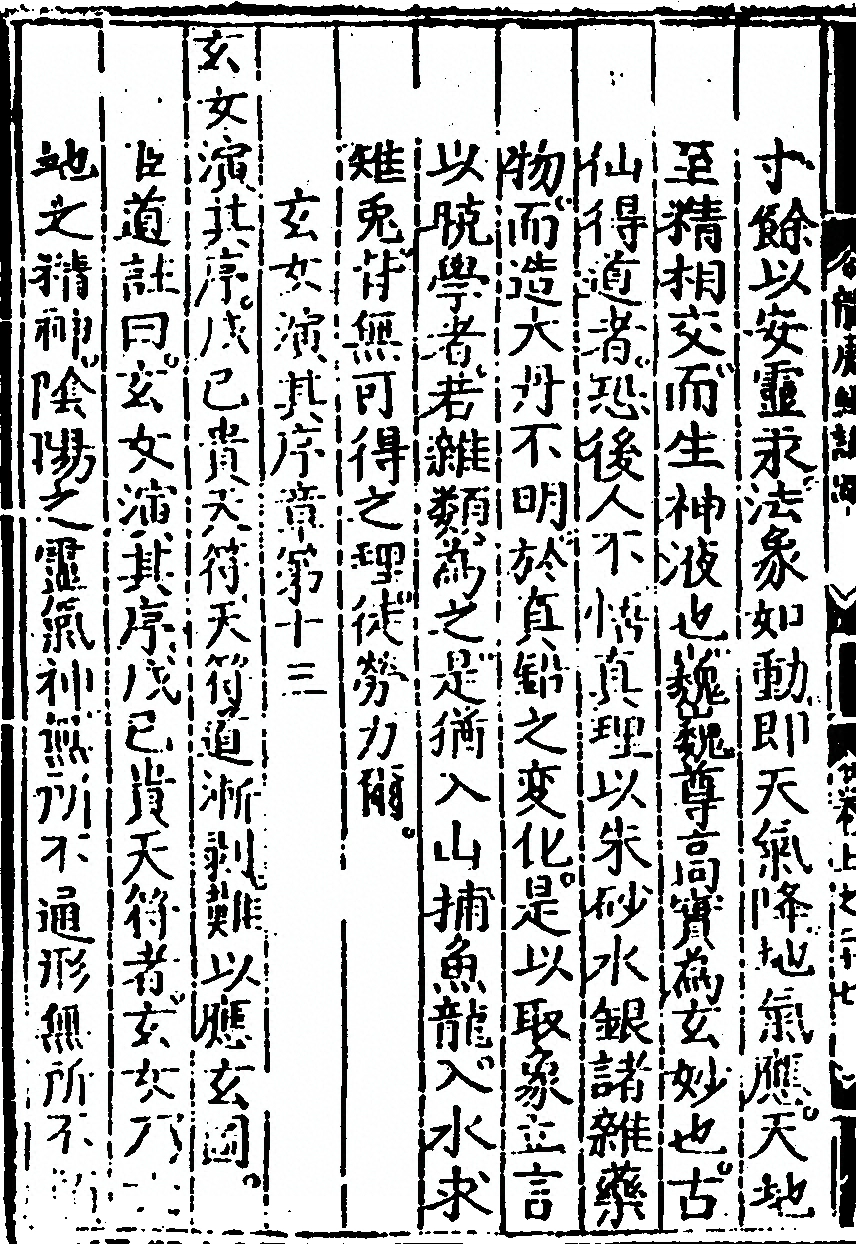 寸餘以安靈汞法象如動即天氣降地氣應天地
至精相交而生神液也巍巍尊高寳爲玄妙也古
仙得道者恐後人不悟真理以朱砂水銀諸雜藥
物而造大丹不明於真鉛之変化是以取象立言
以曉學者若雜類爲之是猶入山捕魚龍入水求
雉兎苻無可得之理徒勞力爾
玄女演其序章第十三
玄女演其序戊己貴天符天符道漸剥難以應玄圖
臣道註曰玄女演其序戊己貴天符者玄女乃
地之精神陰陽之靈氣神無所不通形無所不
卷上之二十七